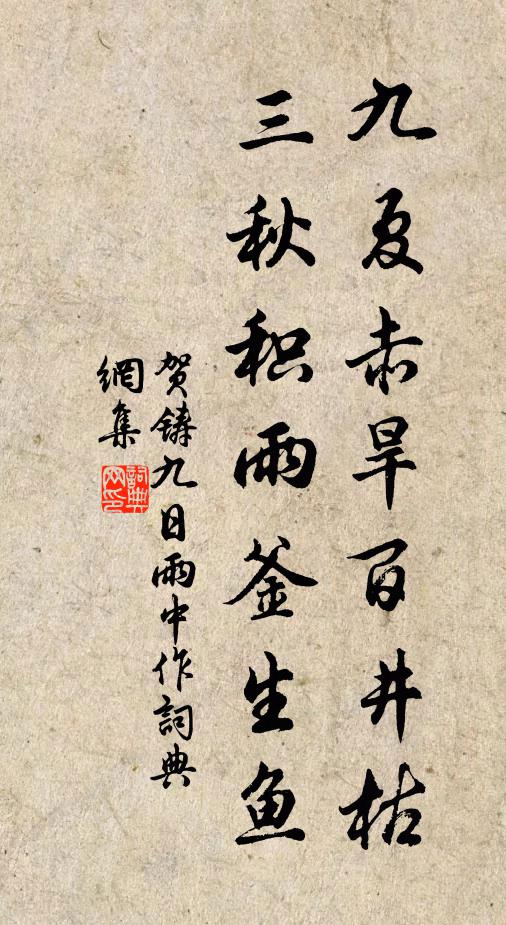 九夏赤旱百井枯
三秋积雨釜生鱼
贺鑄九日雨中作词典
網集
詞典
网印